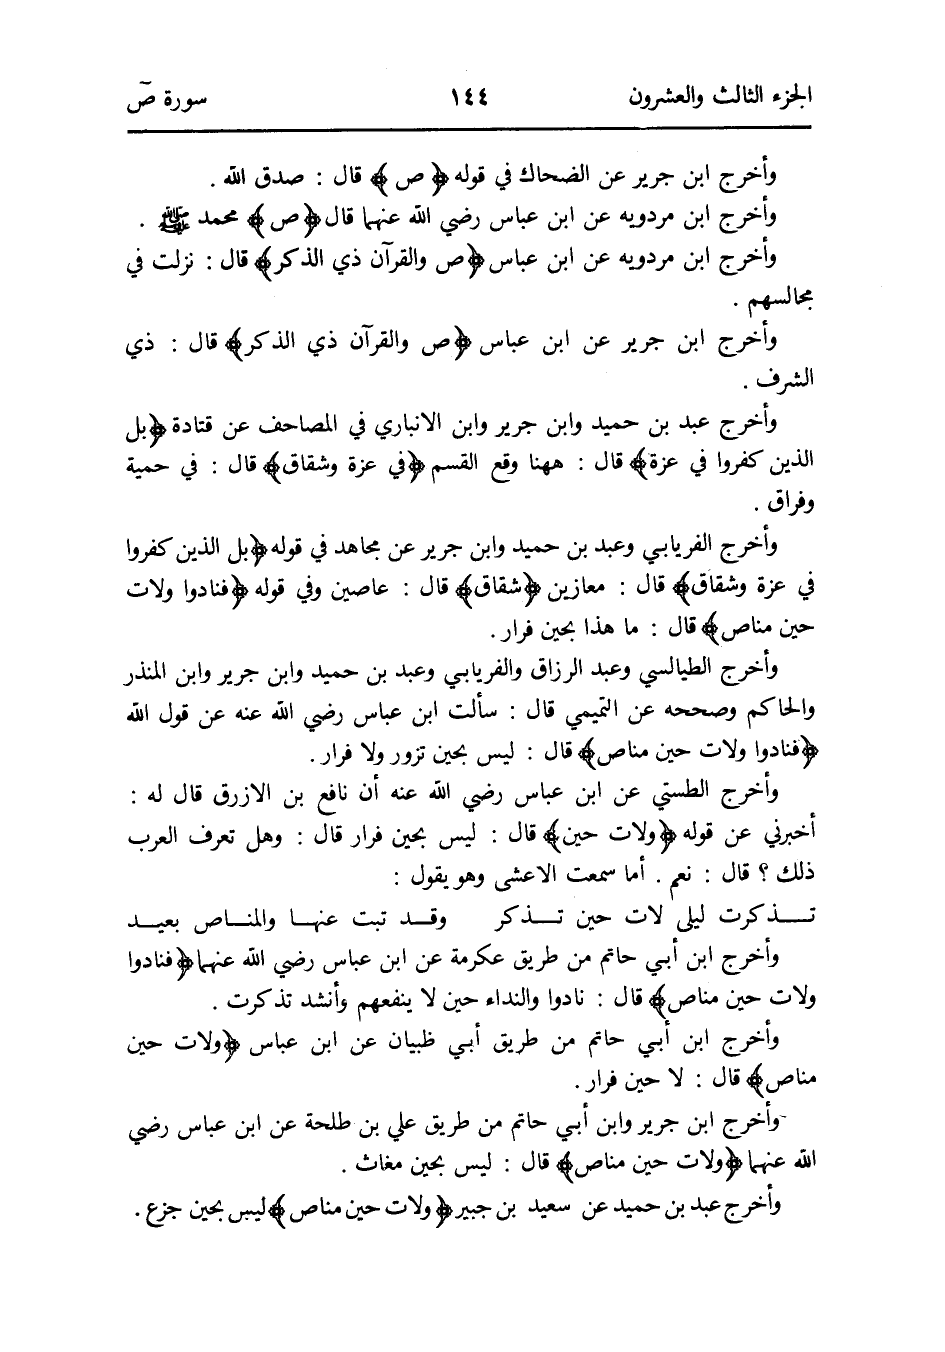 الجزء الثالث والعشرون ١٤٤ سورة صٓ
وأخرج ابن جرير عن الضحاك في قوله ﴿ ص ﴾ قال : صدق الله .
وأخرج ابن مردويه عن ابن عباس رضي الله عنهما قال ﴿ص ﴾ محمد ﷺ .
وأخرج ابن مردويه عن ابن عباس ﴿ص والقرآن ذي الذكر﴾ قال : نزلت في
مجالسهم .
وأخرج ابن جرير عن ابن عباس ﴿ص والقرآن ذي الذكر﴾ قال : ذي
الشرف .
وأخرج عبد بن حميد وابن جرير وابن الانباري في المصاحف عن قتادة ﴿بل
الذين كفروا في عزة﴾ قال : ههنا وقع القسم ﴿في عزة وشقاق﴾ قال : في حمية
وفراق .
وأخرج الفريابي وعبد بن حميد وابن جرير عن مجاهد في قوله ﴿بل الذين كفروا
في عزة وشقاق﴾ قال : معازين ﴿شقاق﴾ قال : عاصين وفي قوله ﴿فنادوا ولات
حين مناص﴾ قال : ما هذا بحين فرار .
وأخرج الطيالسي وعبد الرزاق والفريابي وعبد بن حميد وابن جرير وابن المنذر
والحاكم وصححه عن التميمي قال : سألت ابن عباس رضي الله عنه عن قول الله
﴿فنادوا ولات حين مناص﴾ قال : ليس بحين تزور ولا فرار .
وأخرج الطستي عن ابن عباس رضي الله عنه أن نافع بن الازرق قال له :
أخبرني عن قوله ﴿ولات حين﴾ قال : ليس بحين فرار قال : وهل تعرف العرب
ذلك ؟ قال : نعم . أما سمعت الاعشى وهو يقول :
تـــذكرت ليلى لات حين تـــذكر وقـــد تبت عنهـــا والمنـــاص بعيـــد
وأخرج ابن أبي حاتم من طريق عكرمة عن ابن عباس رضي الله عنهما ﴿فنادوا
ولات حين مناص﴾ قال : نادوا والنداء حين لا ينفعهم وأنشد تذكرت .
وأخرج ابن أبي حاتم من طريق أبي ظبيان عن ابن عباس ﴿ولات حين
مناص﴾ قال : لا حين فرار .
وأخرج ابن جرير وابن أبي حاتم من طريق علي بن طلحة عن ابن عباس رضي
الله عنهما ﴿ولات حين مناص﴾ قال : ليس بحين مغاث .
وأخرج عبد بن حميد عن سعيد بن جبير ﴿ولات حين مناص﴾ ليس بحين جزع .